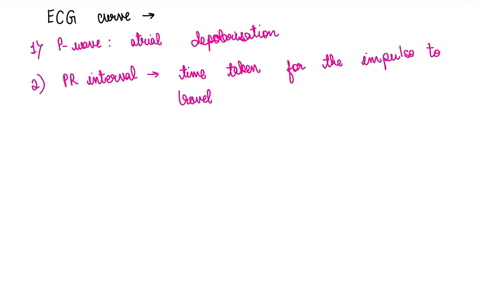 ECG curve →
1) P-wave: atrial depolarisation
2) PR interval → time taken for the impulse to
travel